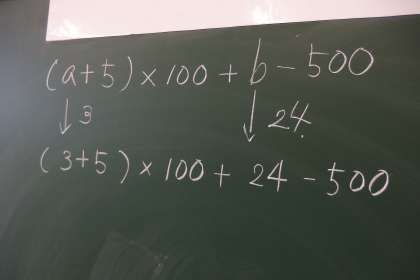 (a+5)×100+b−500
↓3 ↓24.
(3+5)×100+24−500